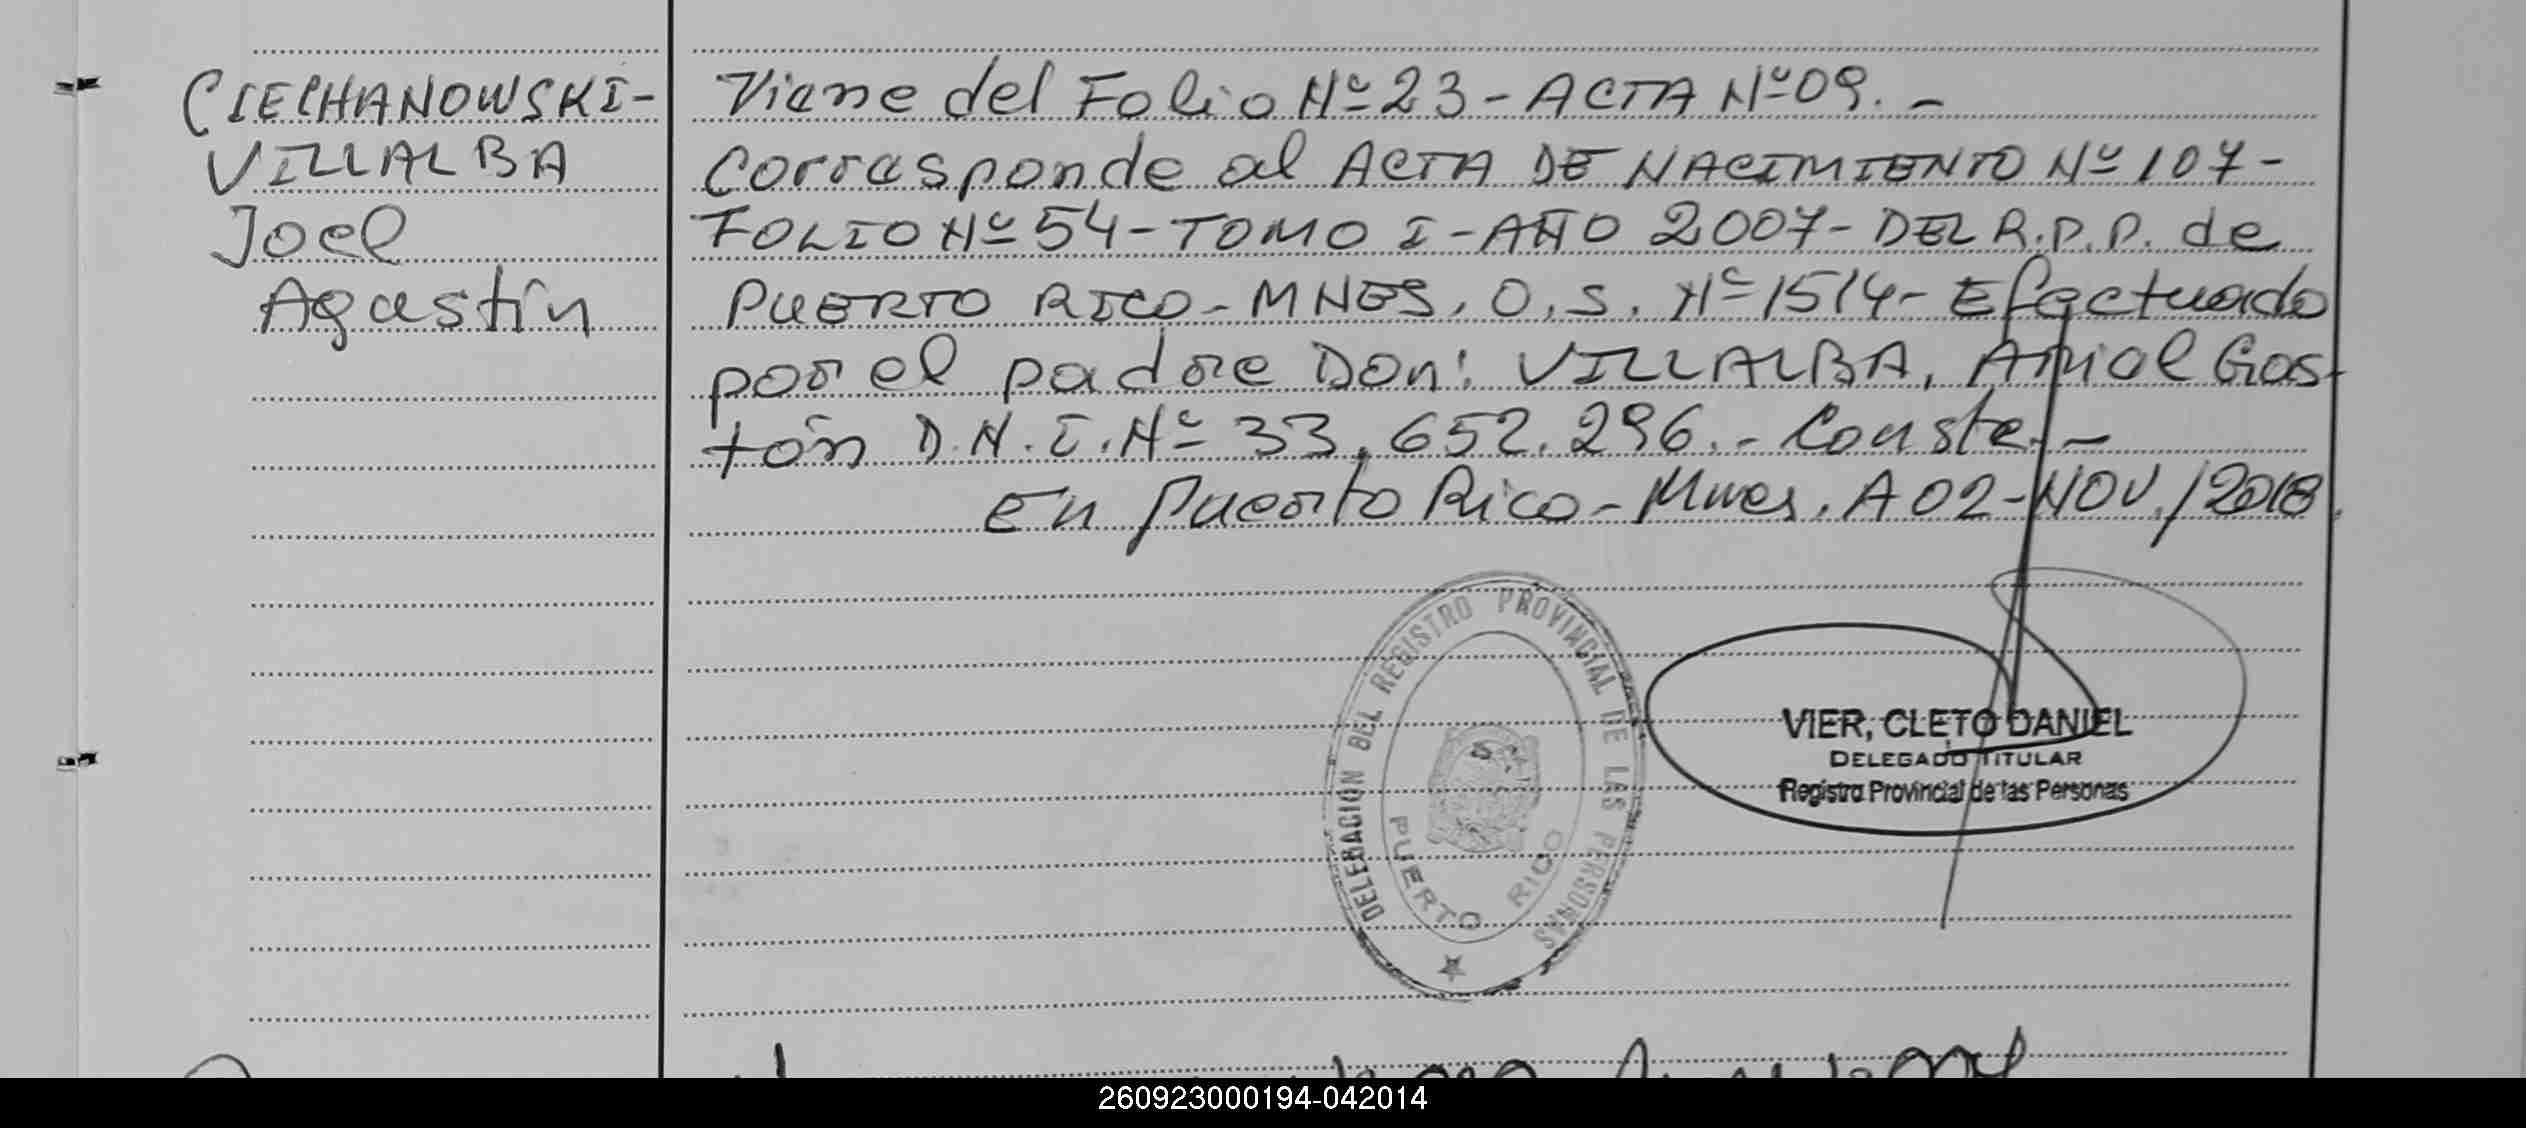 CIECHANOWSKI-
VILLALBA
Joel
Agustín
Viene del Folio Nº 23 - ACTA Nº 09. -
Corresponde al ACTA DE NACIMIENTO Nº 107-
FOLIO Nº 54 - TOMO I - AÑO 2007 - DEL R.P.P. de
PUERTO RICO - MNES. O.S. Nº 1514 - Efectuado
por el padre Don: VILLALBA, Ariel Gas-
tón D.N.I. Nº 33.652.296. - Conste. -
En Puerto Rico - Mnes. A 02 - NOV./2018.
DELEGACION DEL REGISTRO PROVINCIAL DE LAS PERSONAS
PUERTO RICO
VIER, CLETO DANIEL
DELEGADO TITULAR
Registro Provincial de las Personas
260923000194-042014